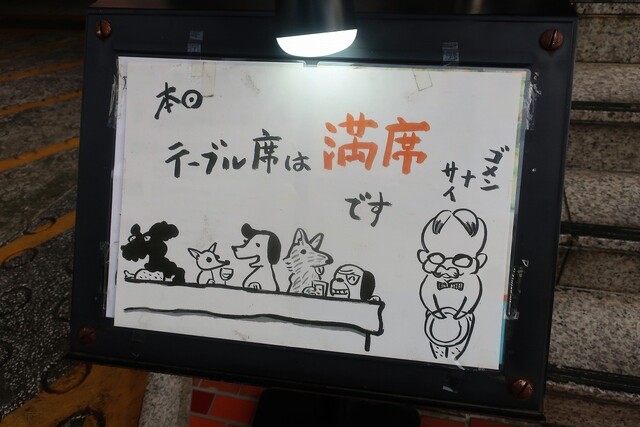 本日
テーブル席は満席
です
ゴメン
ナ
サイ